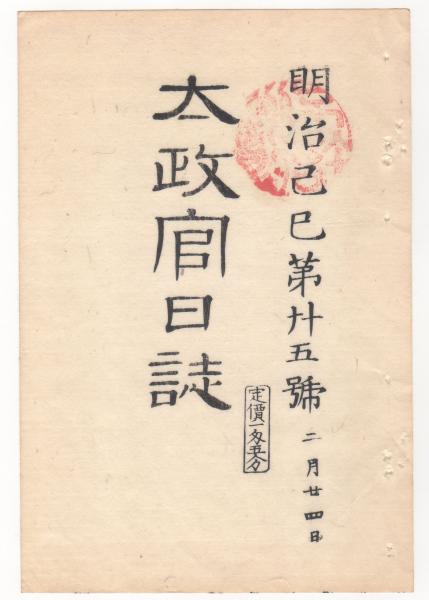 明治己巳第廿五號 二月廿四日
太政官日誌
定價一匁五分